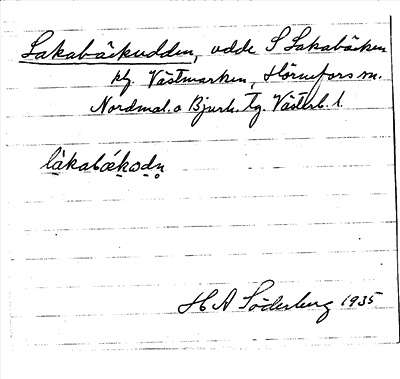 Lakabäckudden, udde S Lakabäcken
Västmarken, Hörnefors sn.
Nordmal. o Bjurh. Tg. Västerb. l.
làkabǽkodn̥
H A Söderberg 1935